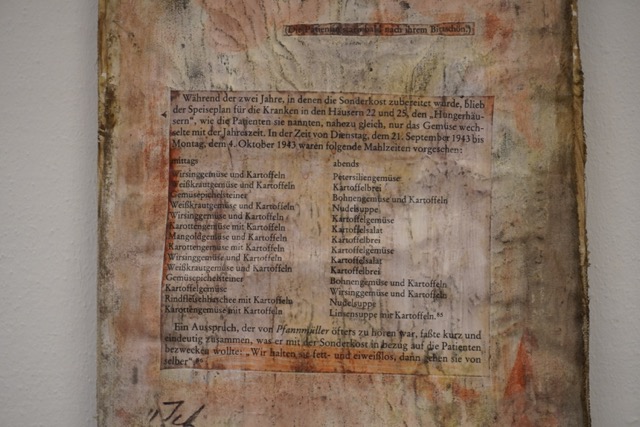 (Die Patientin starb bald nach ihrem Bittschön.)
Während der zwei Jahre, in denen die Sonderkost zubereitet wurde, blieb
der Speiseplan für die Kranken in den Häusern 22 und 25, den „Hungerhäu-
sern", wie die Patienten sie nannten, nahezu gleich, nur das Gemüse wech-
selte mit der Jahreszeit. In der Zeit von Dienstag, dem 21. September 1943 bis
Montag, dem 4. Oktober 1943 waren folgende Mahlzeiten vorgesehen:
mittags
Wirsinggemüse und Kartoffeln
Weißkrautgemüse und Kartoffeln
Gemüsepichelsteiner
Weißkrautgemüse und Kartoffeln
Wirsinggemüse und Kartoffeln
Karottengemüse mit Kartoffeln
Mangoldgemüse und Kartoffeln
Karottengemüse mit Kartoffeln
Wirsinggemüse und Kartoffeln
Weißkrautgemüse und Kartoffeln
Gemüsepichelsteiner
Kartoffelgemüse
Rindfleischhaschee mit Kartoffeln
Karottengemüse mit Kartoffeln
abends
Petersiliengemüse
Kartoffelbrei
Bohnengemüse und Kartoffeln
Nudelsuppe
Kartoffelgemüse
Kartoffelsalat
Kartoffelbrei
Kartoffelgemüse
Kartoffelsalat
Kartoffelbrei
Bohnengemüse und Kartoffeln
Wirsinggemüse und Kartoffeln
Nudelsuppe
Linsensuppe mit Kartoffeln.
Ein Ausspruch, der von Pfannmüller öfters zu hören war, faßte kurz und
eindeutig zusammen, was er mit der Sonderkost in bezug auf die Patienten
bezwecken wollte: „Wir halten sie fett- und eiweißlos, dann gehen sie von
selber"
"Ich